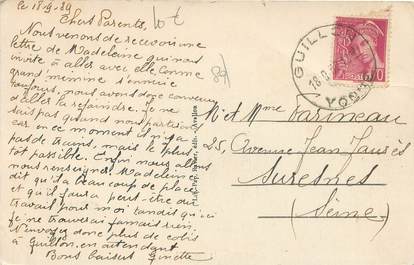 le 18-9-39
Chers Parents,
Nous venons de recevoir une
lettre de Madeleine qui nous
invite à aller avec elle. Comme
grand mémé s'ennuie
toujours, nous avons donc convenu
d'aller la rejoindre. Je ne
sais pas quand nous partirons
car en ce moment il n'y a
pas de trains, mais le plus
tôt possible. Enfin nous allons
nous renseigner. Madeleine
dit qu'il y a beaucoup de place
et qu'il y aura peut-être du
travail pour moi tandis qu'ici
je ne trouverai jamais rien.
N'envoyez donc plus de colis
à Guillon. en attendant
Bons baisers Ginette
GUILLON
18
YONNE
Mr et Mme Varineau
25, Avenue Jean Jaurès
Suresnes
(Seine)